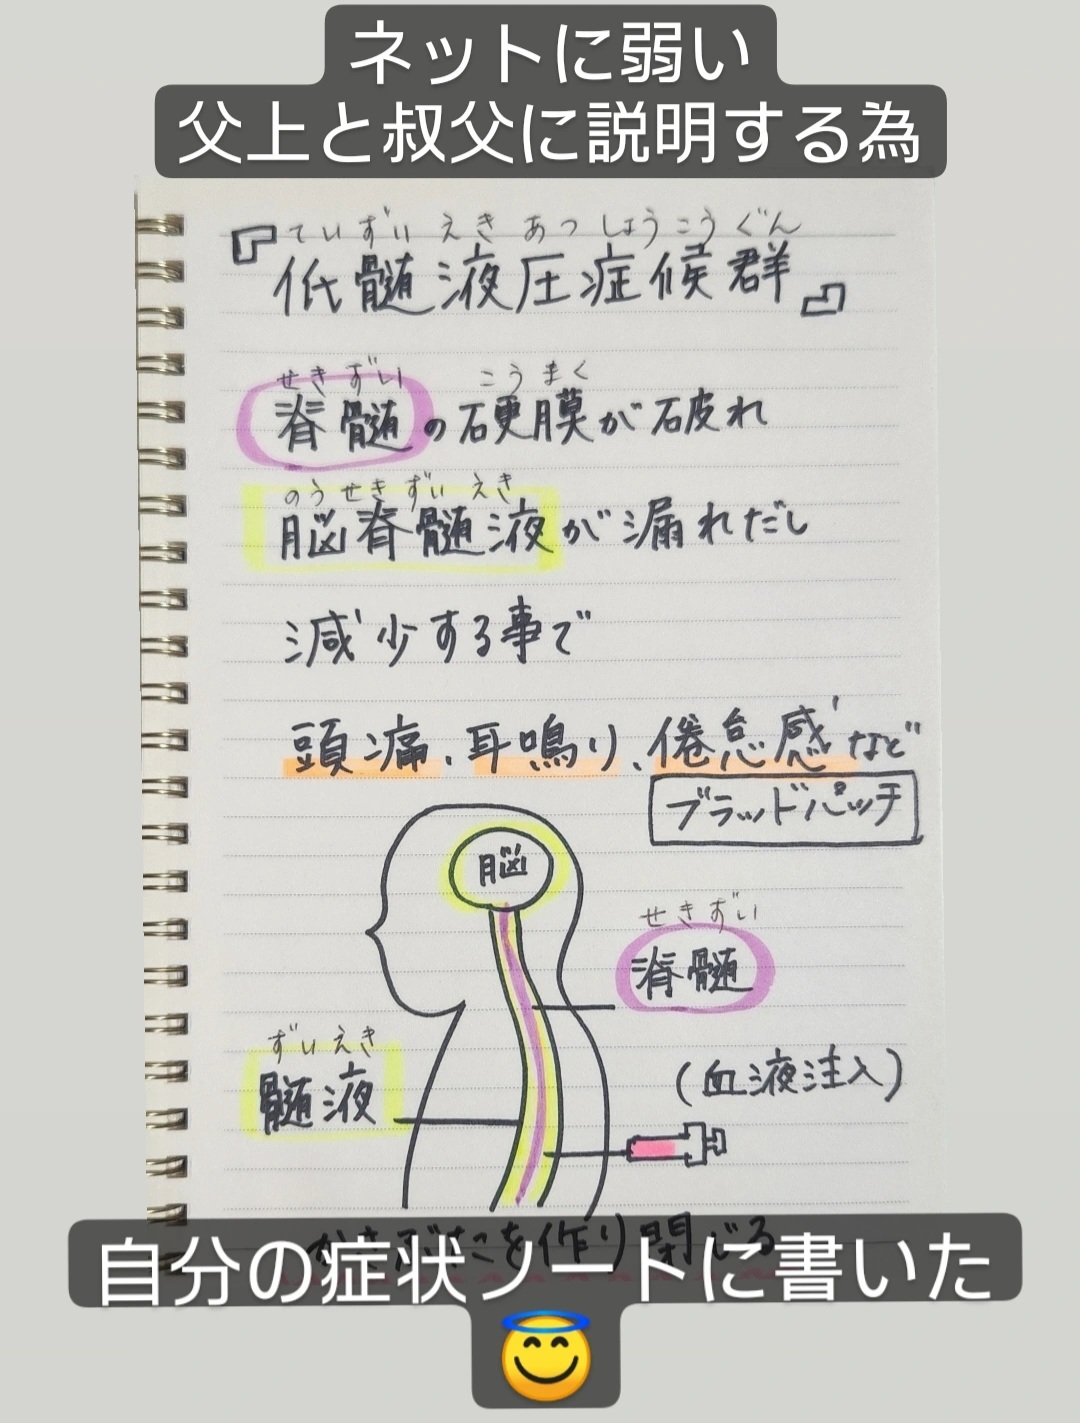 ネットに弱い
父上と叔父に説明する為
ていずいえきあつしょうこうぐん
『低髄液圧症候群』
せきずい こうまく
脊髄の硬膜が破れ
のうせきずいえき
脳脊髄液が漏れだし
減少する事で
頭痛、耳鳴り、倦怠感など
ブラッドパッチ
脳
せきずい
脊髄
ずいえき
髄液
(血液注入)
かさぶたを作り閉じる
自分の症状ノートに書いた
😇